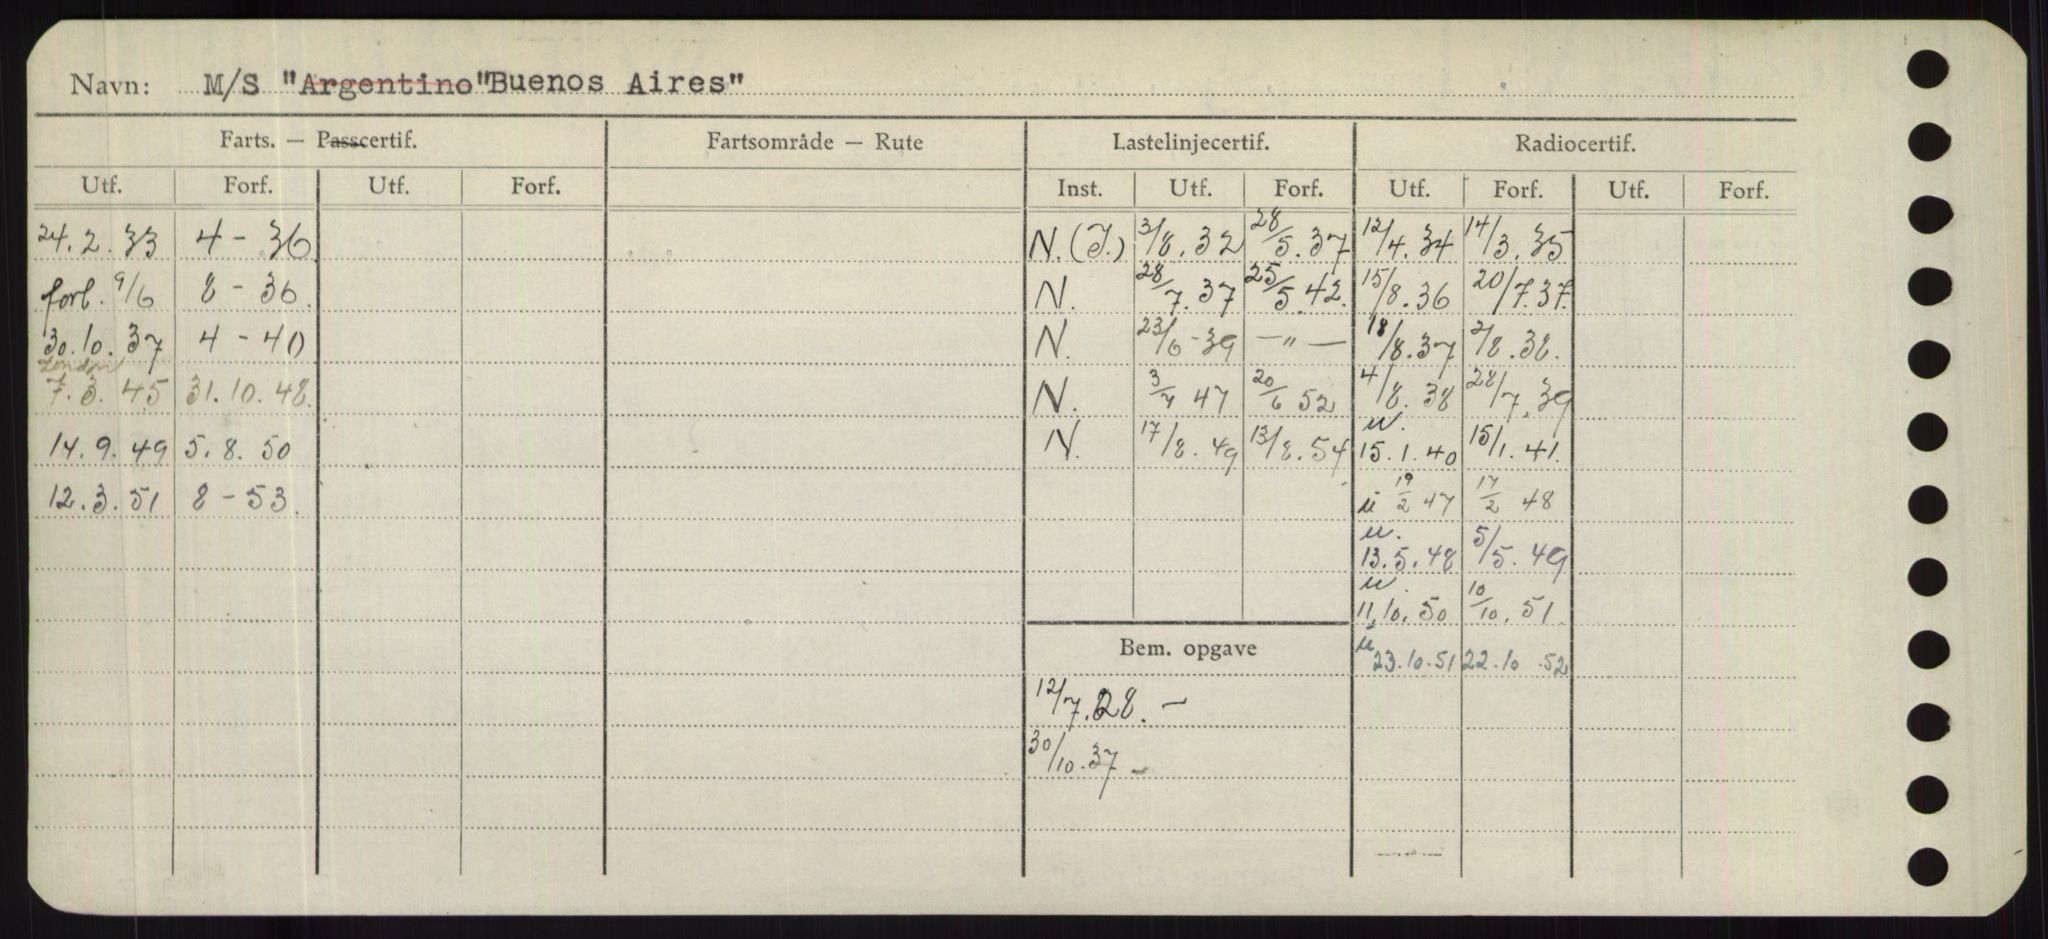 Navn: M/S "Argentino"Buenos Aires"
Farts. — Passcertif. Fartsområde — Rute Lastelinjecertif. Radiocertif.
Utf. Forf. Utf. Forf. Inst. Utf. Forf. Utf. Forf. Utf. Forf.
24.2.33 4-36 N.(I.) 3/8.32 28/5.37 12/4.34 14/3.35
forl. 9/6 8-36. N. 28/7.37 25/5.42. 15/8.36 20/7.37.
30.10.37 4-40 N. 23/6-39 —"— 18/8.37 2/8.38.
London
7.3.45 31.10.48. N. 3/7 47 20/6 52 4/8.38 28/7.39
14.9.49 5.8.50 N. 17/8.49 13/8.54 u. 15.1.40 15/1.41.
12.3.51 8-53. u 19/2 47 17/2 48
u. 13.5.48 5/5.49
u. 11.10.50 10/10.51
Bem. opgave u 23.10.51 22.10.52
12/7.28.-
30/10.37-